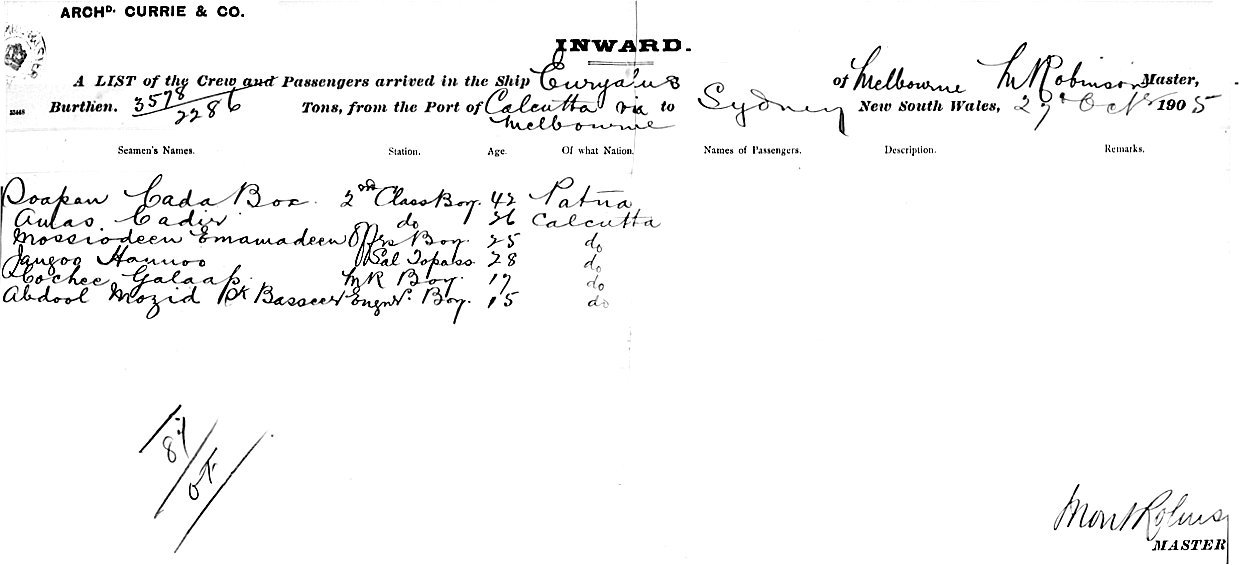 ARCHD. CURRIE & CO.
INWARD.
A LIST of the Crew and Passengers arrived in the Ship Euryalus of Melbourne M Robinson Master,
Burthen. 3578/2286 Tons, from the Port of Calcutta via Melbourne to Sydney New South Wales, 27 Oct 1905
Seamen's Names. Station. Age. Of what Nation. Names of Passengers. Description. Remarks.
Cada Box 2nd Class Boy. 42 Patna
Cadir do 26 Calcutta
Mossiodeen Emamadeen Offrs Boy. 25 do
Jangoo Hannoo Sal Topass 28 do
Cochee Galaap MR Boy. 17 do
Abdool Mozid Basseer Engnr. Boy. 15 do
MASTER